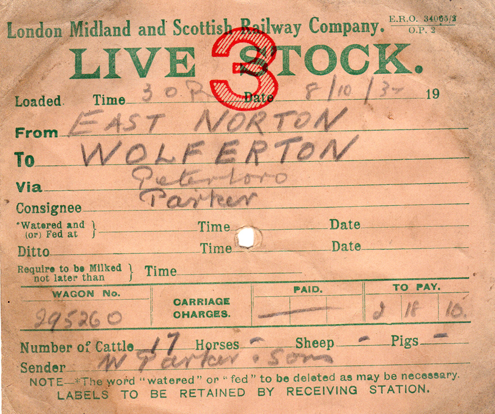 London Midland and Scottish Railway Company.
E.R.O. 34065/2
O.P. 2
LIVE STOCK.
3
Loaded Time 3 0 P Date 8/10/37 19
From EAST NORTON
To WOLFERTON
Via Peterboro
Consignee Parker
*Watered and (or) Fed at } Time Date
Ditto Time Date
Require to be Milked not later than } Time
WAGON No. CARRIAGE CHARGES. PAID. TO PAY.
295260 — 2 18 10.
Number of Cattle 17 Horses - Sheep - Pigs -
Sender W Parker & Sons
NOTE—*The word "watered" or "fed" to be deleted as may be necessary.
LABELS TO BE RETAINED BY RECEIVING STATION.